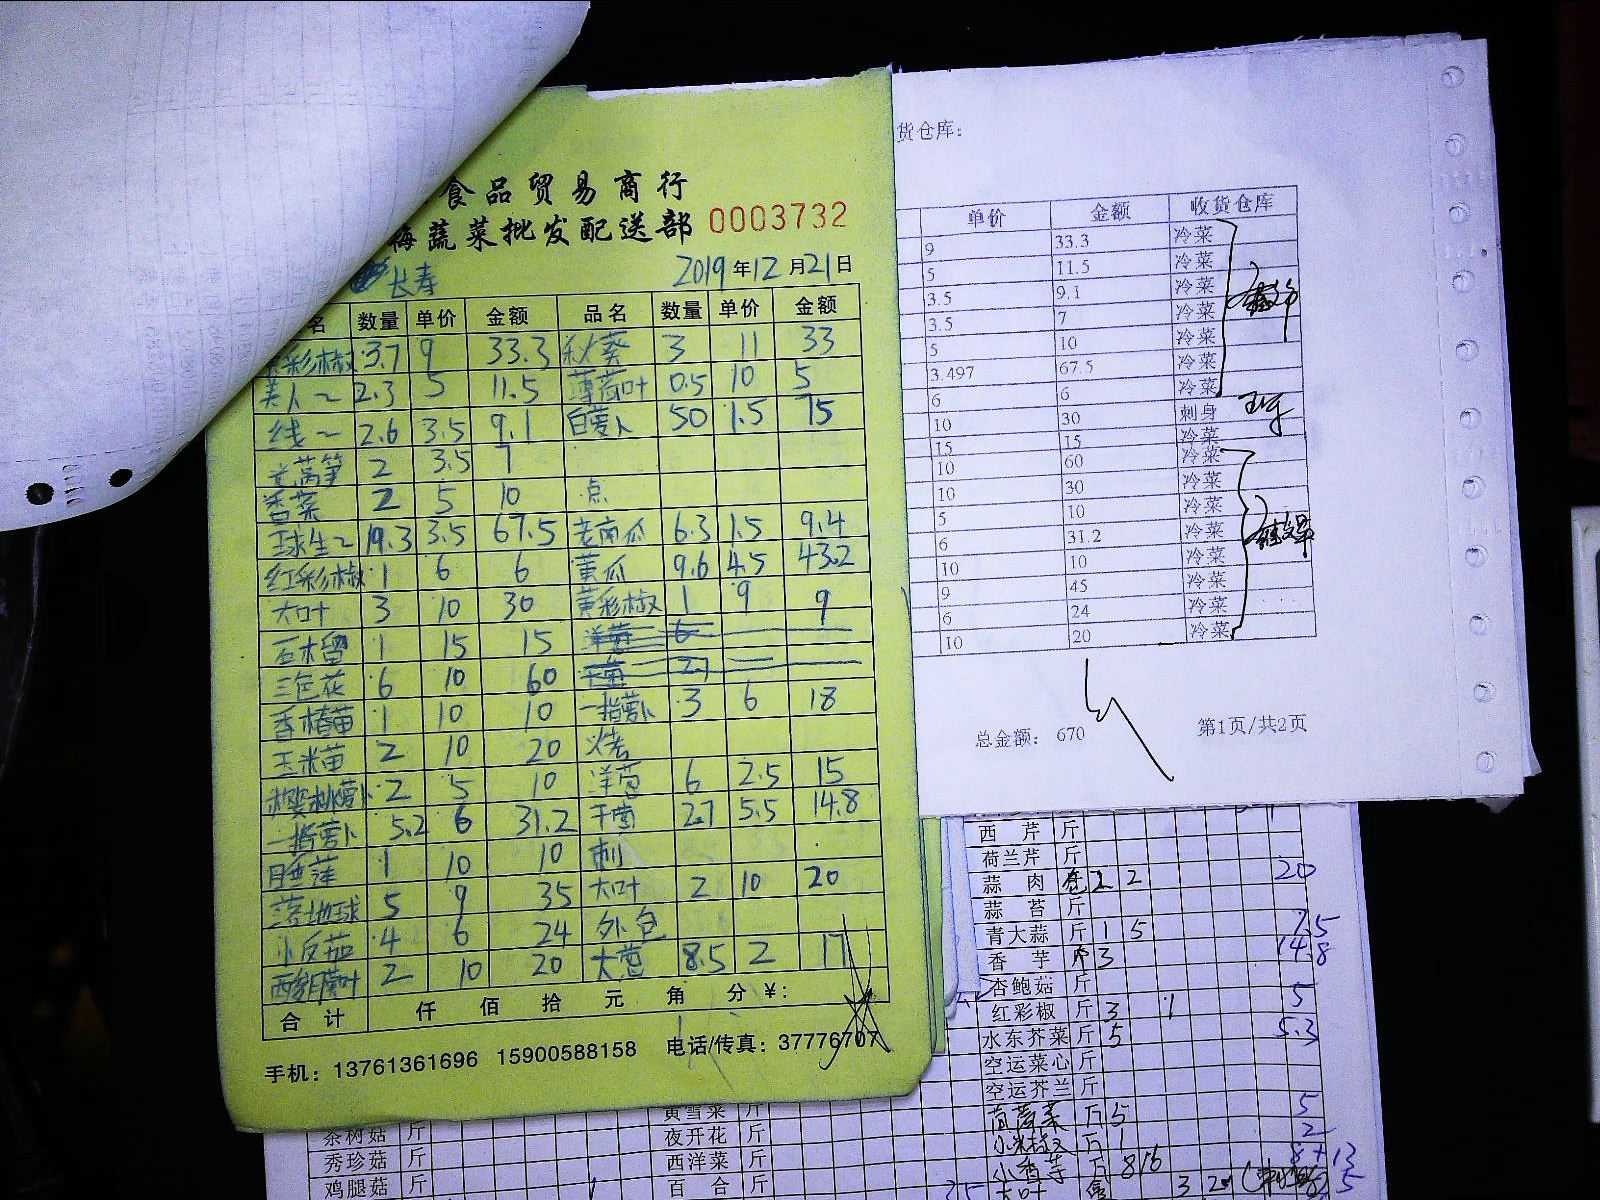 食品贸易商行
梅蔬菜批发配送部 0003732
长寿 2019年12月21日
名 数量 单价 金额 品名 数量 单价 金额
彩椒 3.7 9 33.3 秋葵 3 11 33
美人~ 2.3 5 11.5 薄荷叶 0.5 10 5
线~ 2.6 3.5 9.1 白萝卜 50 1.5 75
光莴笋 2 3.5 7
香菜 2 5 10 点
球生~ 19.3 3.5 67.5 老南瓜 6.3 1.5 9.4
红彩椒 1 6 6 黄瓜 9.6 4.5 43.2
大叶 3 10 30 黄彩椒 1 9 9
石榴 1 15 15 洋葱 6
三色花 6 10 60 干葱 2.7
香椿苗 1 10 10 一指萝卜 3 6 18
玉米苗 2 10 20 烤
樱桃萝卜 2 5 10 洋葱 6 2.5 15
一指萝卜 5.2 6 31.2 干葱 2.7 5.5 14.8
睡莲 1 10 10 刺
5 9 35 大叶 2 10 20
小皮茄 4 6 24 外包
2 10 20 大葱 8.5 2 17
合计 仟 佰 拾 元 角 分 ¥:
手机: 13761361696 15900588158 电话/传真: 37776707
货仓库:
单价 金额 收货仓库
9 33.3 冷菜
5 11.5 冷菜
3.5 9.1 冷菜
3.5 7 冷菜
5 10 冷菜
3.497 67.5 冷菜
6 6 冷菜
10 30 刺身
15 15 冷菜
10 60 冷菜
10 30 冷菜
5 10 冷菜
6 31.2 冷菜
10 10 冷菜
9 45 冷菜
6 24 冷菜
10 20 冷菜
总金额: 670 第1页/共2页
西芹 斤
荷兰芹 斤
蒜肉 2 20
蒜苔 斤
青大蒜 斤 1 5 7.5
香芋 3 14.8
杏鲍菇 斤
红彩椒 斤 3 1 5
水东芥菜 斤 5 5.3
空运菜心 斤
空运芥兰 斤
茼蒿菜 斤 5 5
小米椒 斤 1 2
小香芋 斤 8 8+13
大叶 3
茶树菇 斤
秀珍菇 斤
鸡腿菇 斤
黄雪菜 斤
夜开花 斤
西洋菜 斤
百合 斤